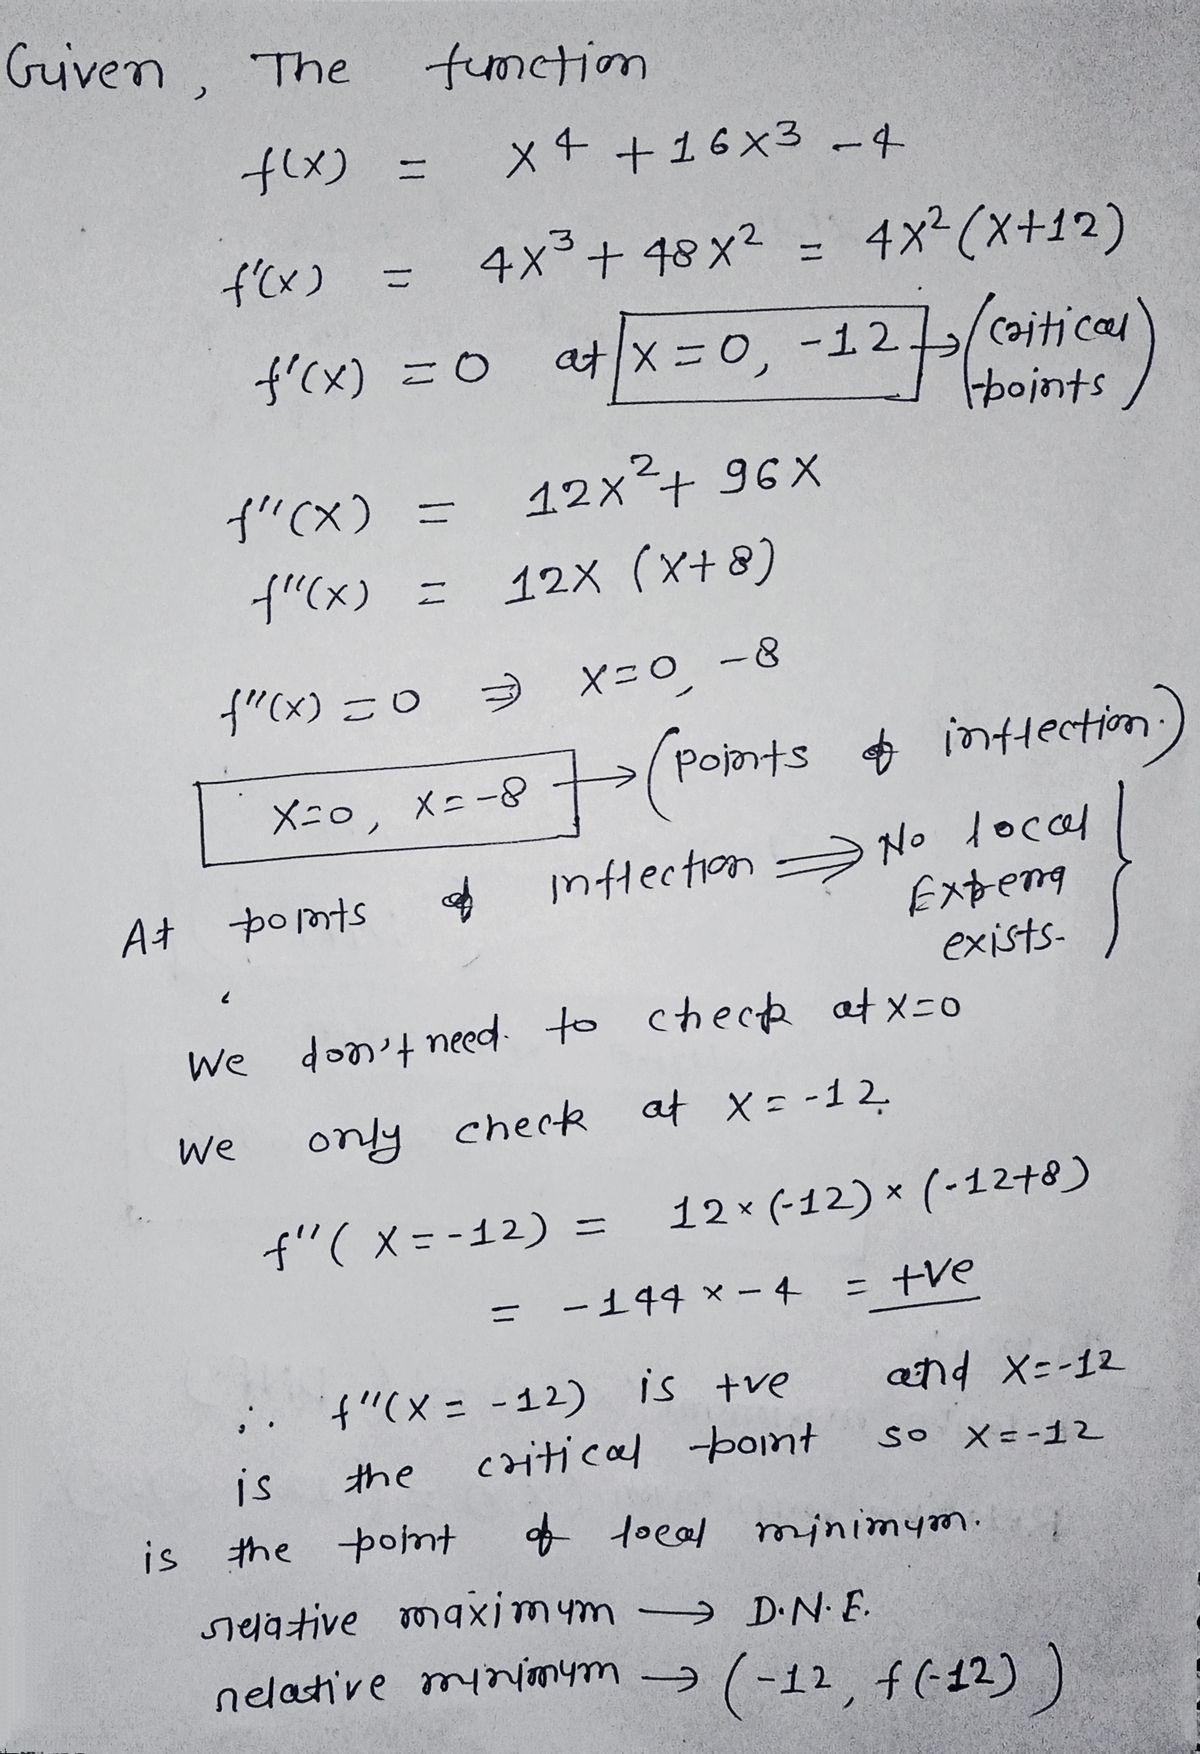 Given, The function
f(x) = x⁴ + 16x³ - 4
f'(x) = 4x³ + 48x² = 4x²(x+12)
f'(x) = 0 at x = 0, -12 → (critical points)
f''(x) = 12x² + 96x
f''(x) = 12x (x+8)
f''(x) = 0 ⇒ x=0, -8
x=0, x=-8 → (points of inflection.)
At points of inflection ⇒ No local Extrema exists-
We don't need. to check at x=0
We only check at x=-12.
f''(x=-12) = 12×(-12)×(-12+8)
= -144 × -4 = +ve
∴ f''(x = -12) is +ve and x=-12
is the critical point so x=-12
is the point of local minimum.
relative maximum → D.N.E.
relative minimum → (-12, f(-12))